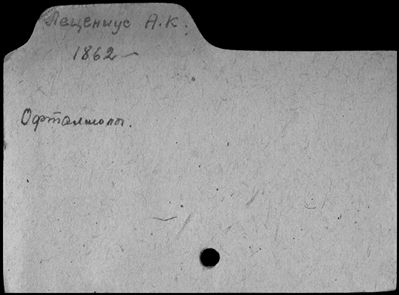 Лещениус А.К.
1862 —
Офтальмолог.